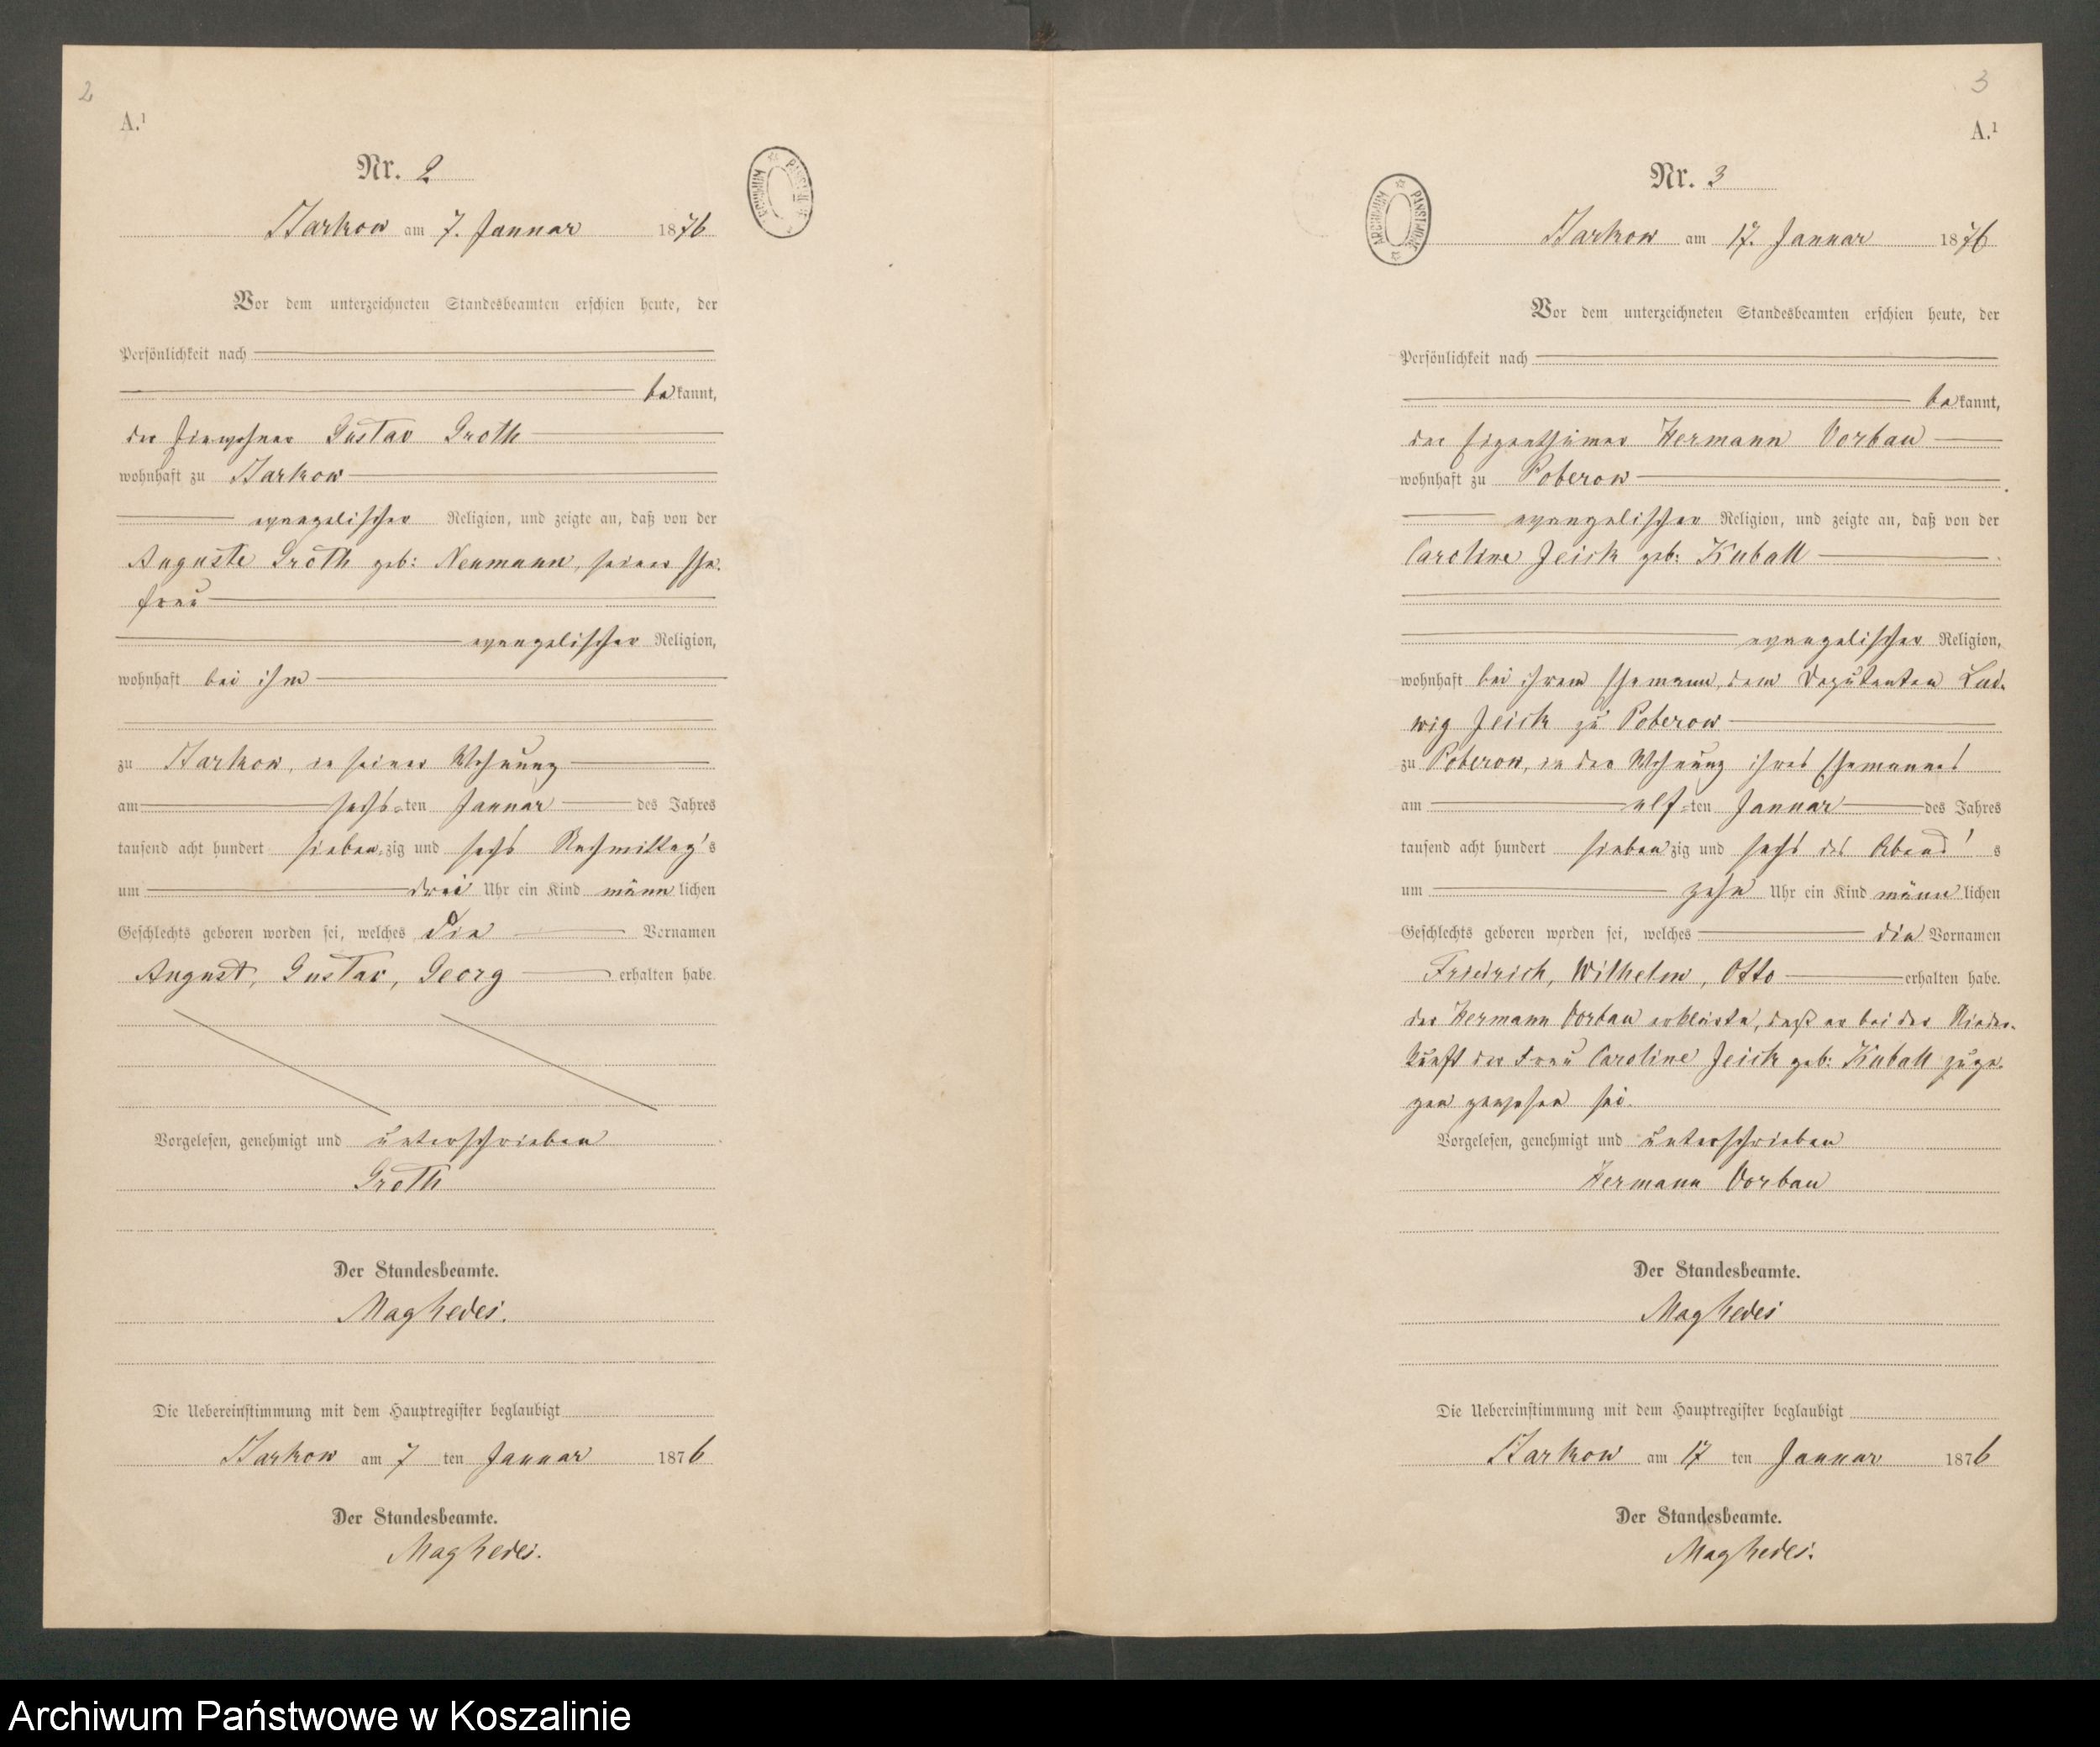 2
A.¹
Nr. 2
ARCHIWUM PAŃSTWOWE
Starkow am 7. Januar 1876
Vor dem unterzeichneten Standesbeamten erschien heute, der
Persönlichkeit nach
bekannt,
der Einwohner Gustav Groth
wohnhaft zu Starkow
evangelischer Religion, und zeigte an, daß von der
Auguste Groth geb: Neumann, seiner Ehe-
frau
evangelischer Religion,
wohnhaft bei ihm
zu Starkow, in seiner Wohnung
am sechs-ten Januar des Jahres
tausend acht hundert siebenzig und sechs Nachmittag's
um drei Uhr ein Kind männlichen
Geschlechts geboren worden sei, welches die Vornamen
August, Gustav, Georg erhalten habe.
Vorgelesen, genehmigt und unterschrieben
Groth
Der Standesbeamte.
Die Uebereinstimmung mit dem Hauptregister beglaubigt
Starkow am 7 ten Januar 1876
Der Standesbeamte.
3
A.¹
Nr. 3
ARCHIWUM PAŃSTWOWE
Starkow am 17. Januar 1876
Vor dem unterzeichneten Standesbeamten erschien heute, der
Persönlichkeit nach
bekannt,
der Eigenthümer Hermann Vorbau
wohnhaft zu Poberow
evangelischer Religion, und zeigte an, daß von der
Caroline Jeick geb: Kuball
evangelischer Religion,
wohnhaft bei ihrem Ehemann, dem Deputanten Lud-
wig Jeick zu Poberow
zu Poberow, in der Wohnung ihres Ehemannes
am elf-ten Januar des Jahres
tausend acht hundert siebenzig und sechs des Abend's
um zehn Uhr ein Kind männlichen
Geschlechts geboren worden sei, welches die Vornamen
Friedrich, Wilhelm, Otto erhalten habe.
der Hermann Vorbau erklärte, daß er bei der Nieder-
kunft der Frau Caroline Jeick geb: Kuball zuge-
gen gewesen sei.
Vorgelesen, genehmigt und unterschrieben
Hermann Vorbau
Der Standesbeamte.
Die Uebereinstimmung mit dem Hauptregister beglaubigt
Starkow am 17 ten Januar 1876
Der Standesbeamte.
Archiwum Państwowe w Koszalinie